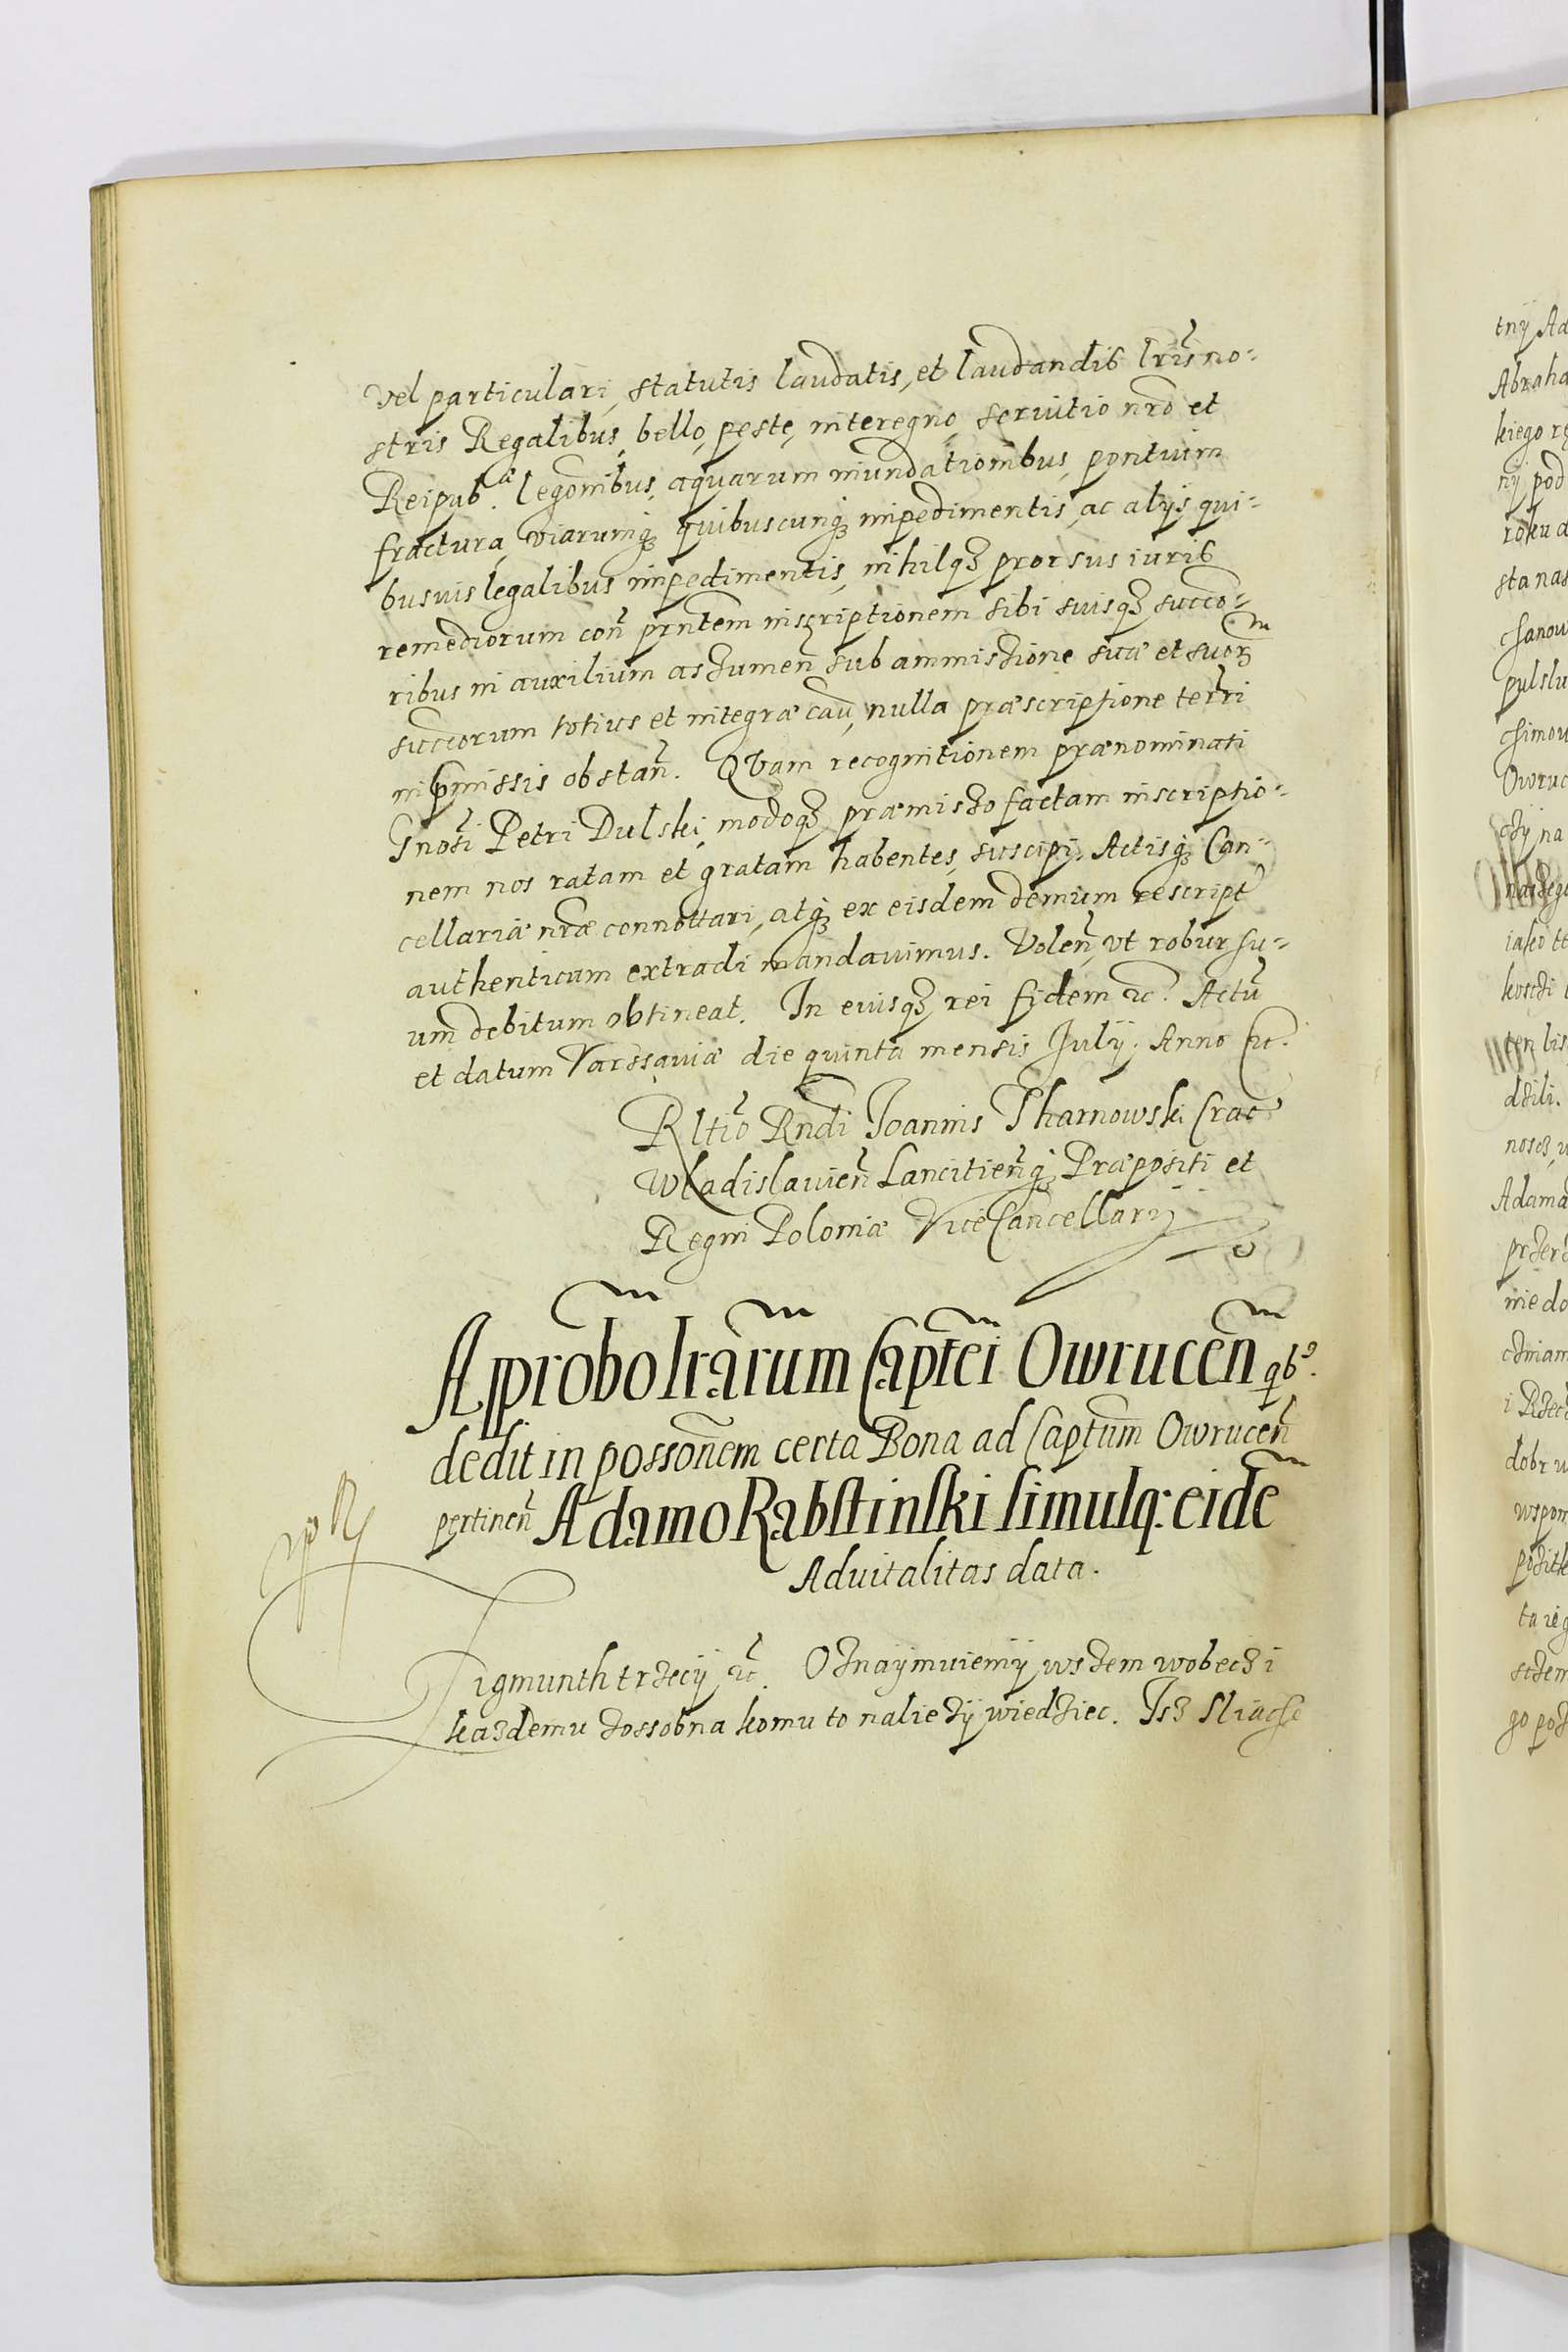 vel particulari, statutis laudatis, et laudandis lr̃is no-
stris Regalibus, bello, peste, interegno, seruitio nr̃o et
Reipub.ᵃ legõnibus, aquarum inundationibus, pontium
fractura, viarumq₃ quibuscunq₃ impedimentis, ac alijs qui-
busuis legalibus impedimentis, nihilq₃ prorsus iuris
remediorum coñ prñtem inscriptionem sibi suisq₃ succo-
ribus in auxilium assumeñ sub ammissione suæ et suor̃
succorum totius et integræ cau͂, nulla præscriptione terrĩ
in p̱missis obstañ. Qvam recognitionem prænominati
Gnosĩ Petri Dulski, modoq₃ præmisso factam inscriptio-
nem nos ratam et gratam habentes, suscipi, Actisq₃ Can-
cellariæ nr̃æ connottari, atq₃ ex eisdem demum rescript̃
authenticum extradi mandauimus. Voleñ, vt robur su-
um debitum obtineat. In cuiusq₃ rei fidem ꝛc. Actũ
et datum Varssauiæ die quinta mensis Julij. Anno ꝛc.
Rltĩo Rndĩ Joannis Tharnowski Crac̃
Wladislauieñ Lancitieñq₃ Præpositi et
Regni Poloniæ ViceCancellarij
Approbo lrãrum Capitẽi Owruceñ qb⁹.
dedit in possoñem certa Bona ad Captũm Owruceñ
pertineñ Adamo Rabstinski simulq₃ eidẽ
Aduitalitas data.
Zigmunth trzecij ꝛc. Oznaÿmuiemÿ wszem wobecz i
kazdemu zossobna komu to naliezÿ wiedziec. Jsz Sliacse
tnÿ Ad
Abraha
kiego r
nÿ pod
roku
sta nas
Owruc
na
dzili.
Adama
nie do
dobr
wspom
go